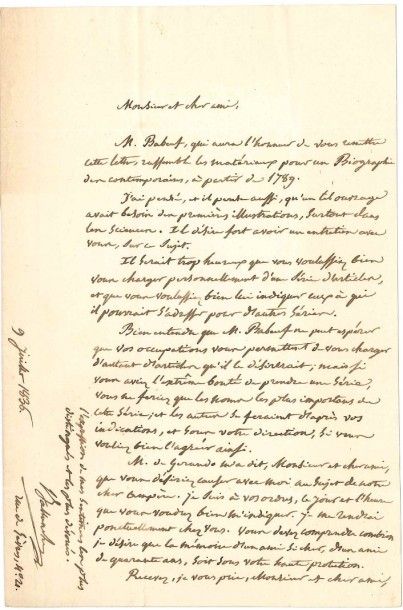 Monsieur et cher ami,
M. Babeuf, qui aura l'honneur de vous remettre
cette lettre, rassemble les matériaux pour une Biographie
des contemporains, à partir de 1789.
J'ai pensé, et il pense aussi, qu'un tel ouvrage
avait besoin des premières illustrations, surtout dans
les Sciences. Il désire fort avoir un entretien avec
vous, sur ce sujet.
Il serait trop heureux que vous voulussiez bien
vous charger personnellement d'une Série d'articles,
et que vous voulussiez bien lui indiquer ceux à qui
il pourrait s'adresser pour d'autres Séries.
Bien entendu que M. Babeuf ne peut espérer
que vos occupations vous permettent de vous charger
d'autant d'articles qu'il le désirerait; mais si
vous aviez l'extrême bonté de prendre une Série,
vous ne feriez que les noms les plus importans de
cette Série; et les autres se feraient d'après vos
indications, et sous votre direction, si vous
vouliez bien l'agréer ainsi.
M. de Gerando m'a dit, Monsieur et cher ami,
que vous désiriez causer avec moi au sujet de notre
cher Ampère. Je suis à vos ordres, le jour et l'heure
que vous voudrez bien m'indiquer. Je me rendrai
ponctuellement chez vous. Vous devez comprendre combien
je désire que la mémoire d'un ami si cher, d'un ami
de quarante ans, soit sous votre haute protection.
Recevez, je vous prie, Monsieur et cher ami,
l'expression de mes sentimens les plus
distingués et les plus dévoués.
Ballanche
rue de
9 juillet 1836